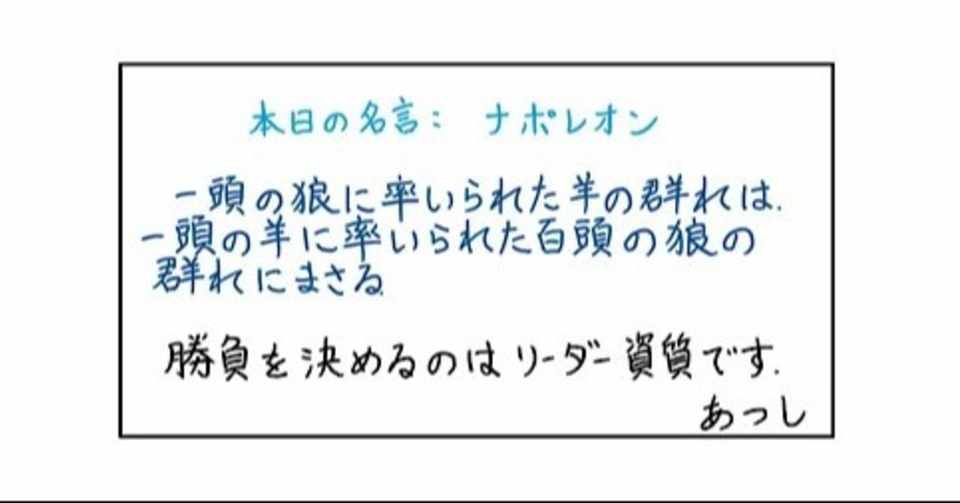 本日の名言： ナポレオン
一頭の狼に率いられた羊の群れは.
一頭の羊に率いられた百頭の狼の
群れにまさる.
勝負を決めるのはリーダー資質です.
あつし